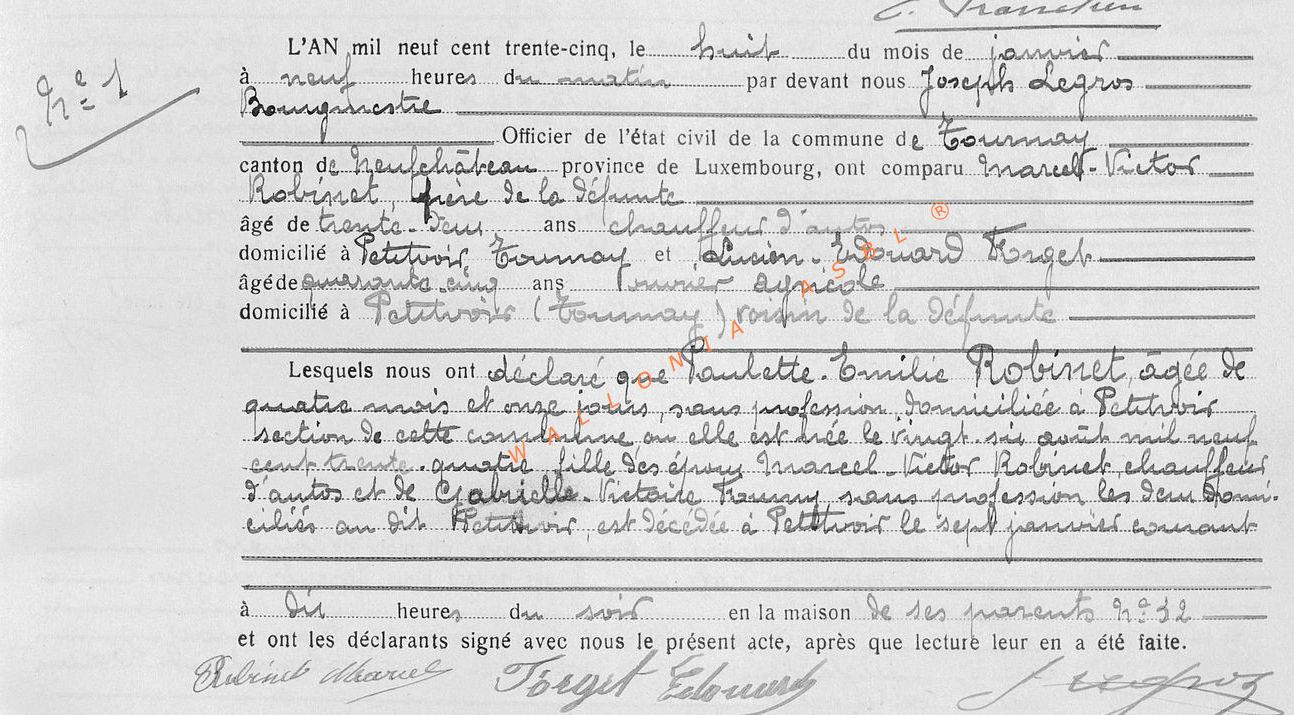 Nº 1
L'AN mil neuf cent trente-cinq, le huit du mois de janvier
à neuf heures du matin par devant nous Joseph Legros
Bourgmestre
Officier de l'état civil de la commune de Tournay
canton de Neufchâteau province de Luxembourg, ont comparu Marcel-Victor
Robinet, père de la défunte
âgé de trente-deux ans chauffeur d'autos
domicilié à Petitvoir Tournay et Lucien-Edouard Forget
âgé de quarante-cinq ans ouvrier agricole
domicilié à Petitvoir (Tournay) voisin de la défunte
Lesquels nous ont déclaré que Paulette-Emilie Robinet, âgée de
quatre mois et onze jours, sans profession, domiciliée à Petitvoir
section de cette commune où elle est née le vingt-six août mil neuf
cent trente-quatre, fille des époux Marcel-Victor Robinet, chauffeur
d'autos et de Gabrielle-Victoire sans profession les deux domi-
ciliés au dit Petitvoir, est décédée à Petitvoir le sept janvier courant
à dix heures du soir en la maison de ses parents Nº 32
et ont les déclarants signé avec nous le présent acte, après que lecture leur en a été faite.
Robinet Marcel Forget Edouard J Legros
WALLONIA ASBL ®